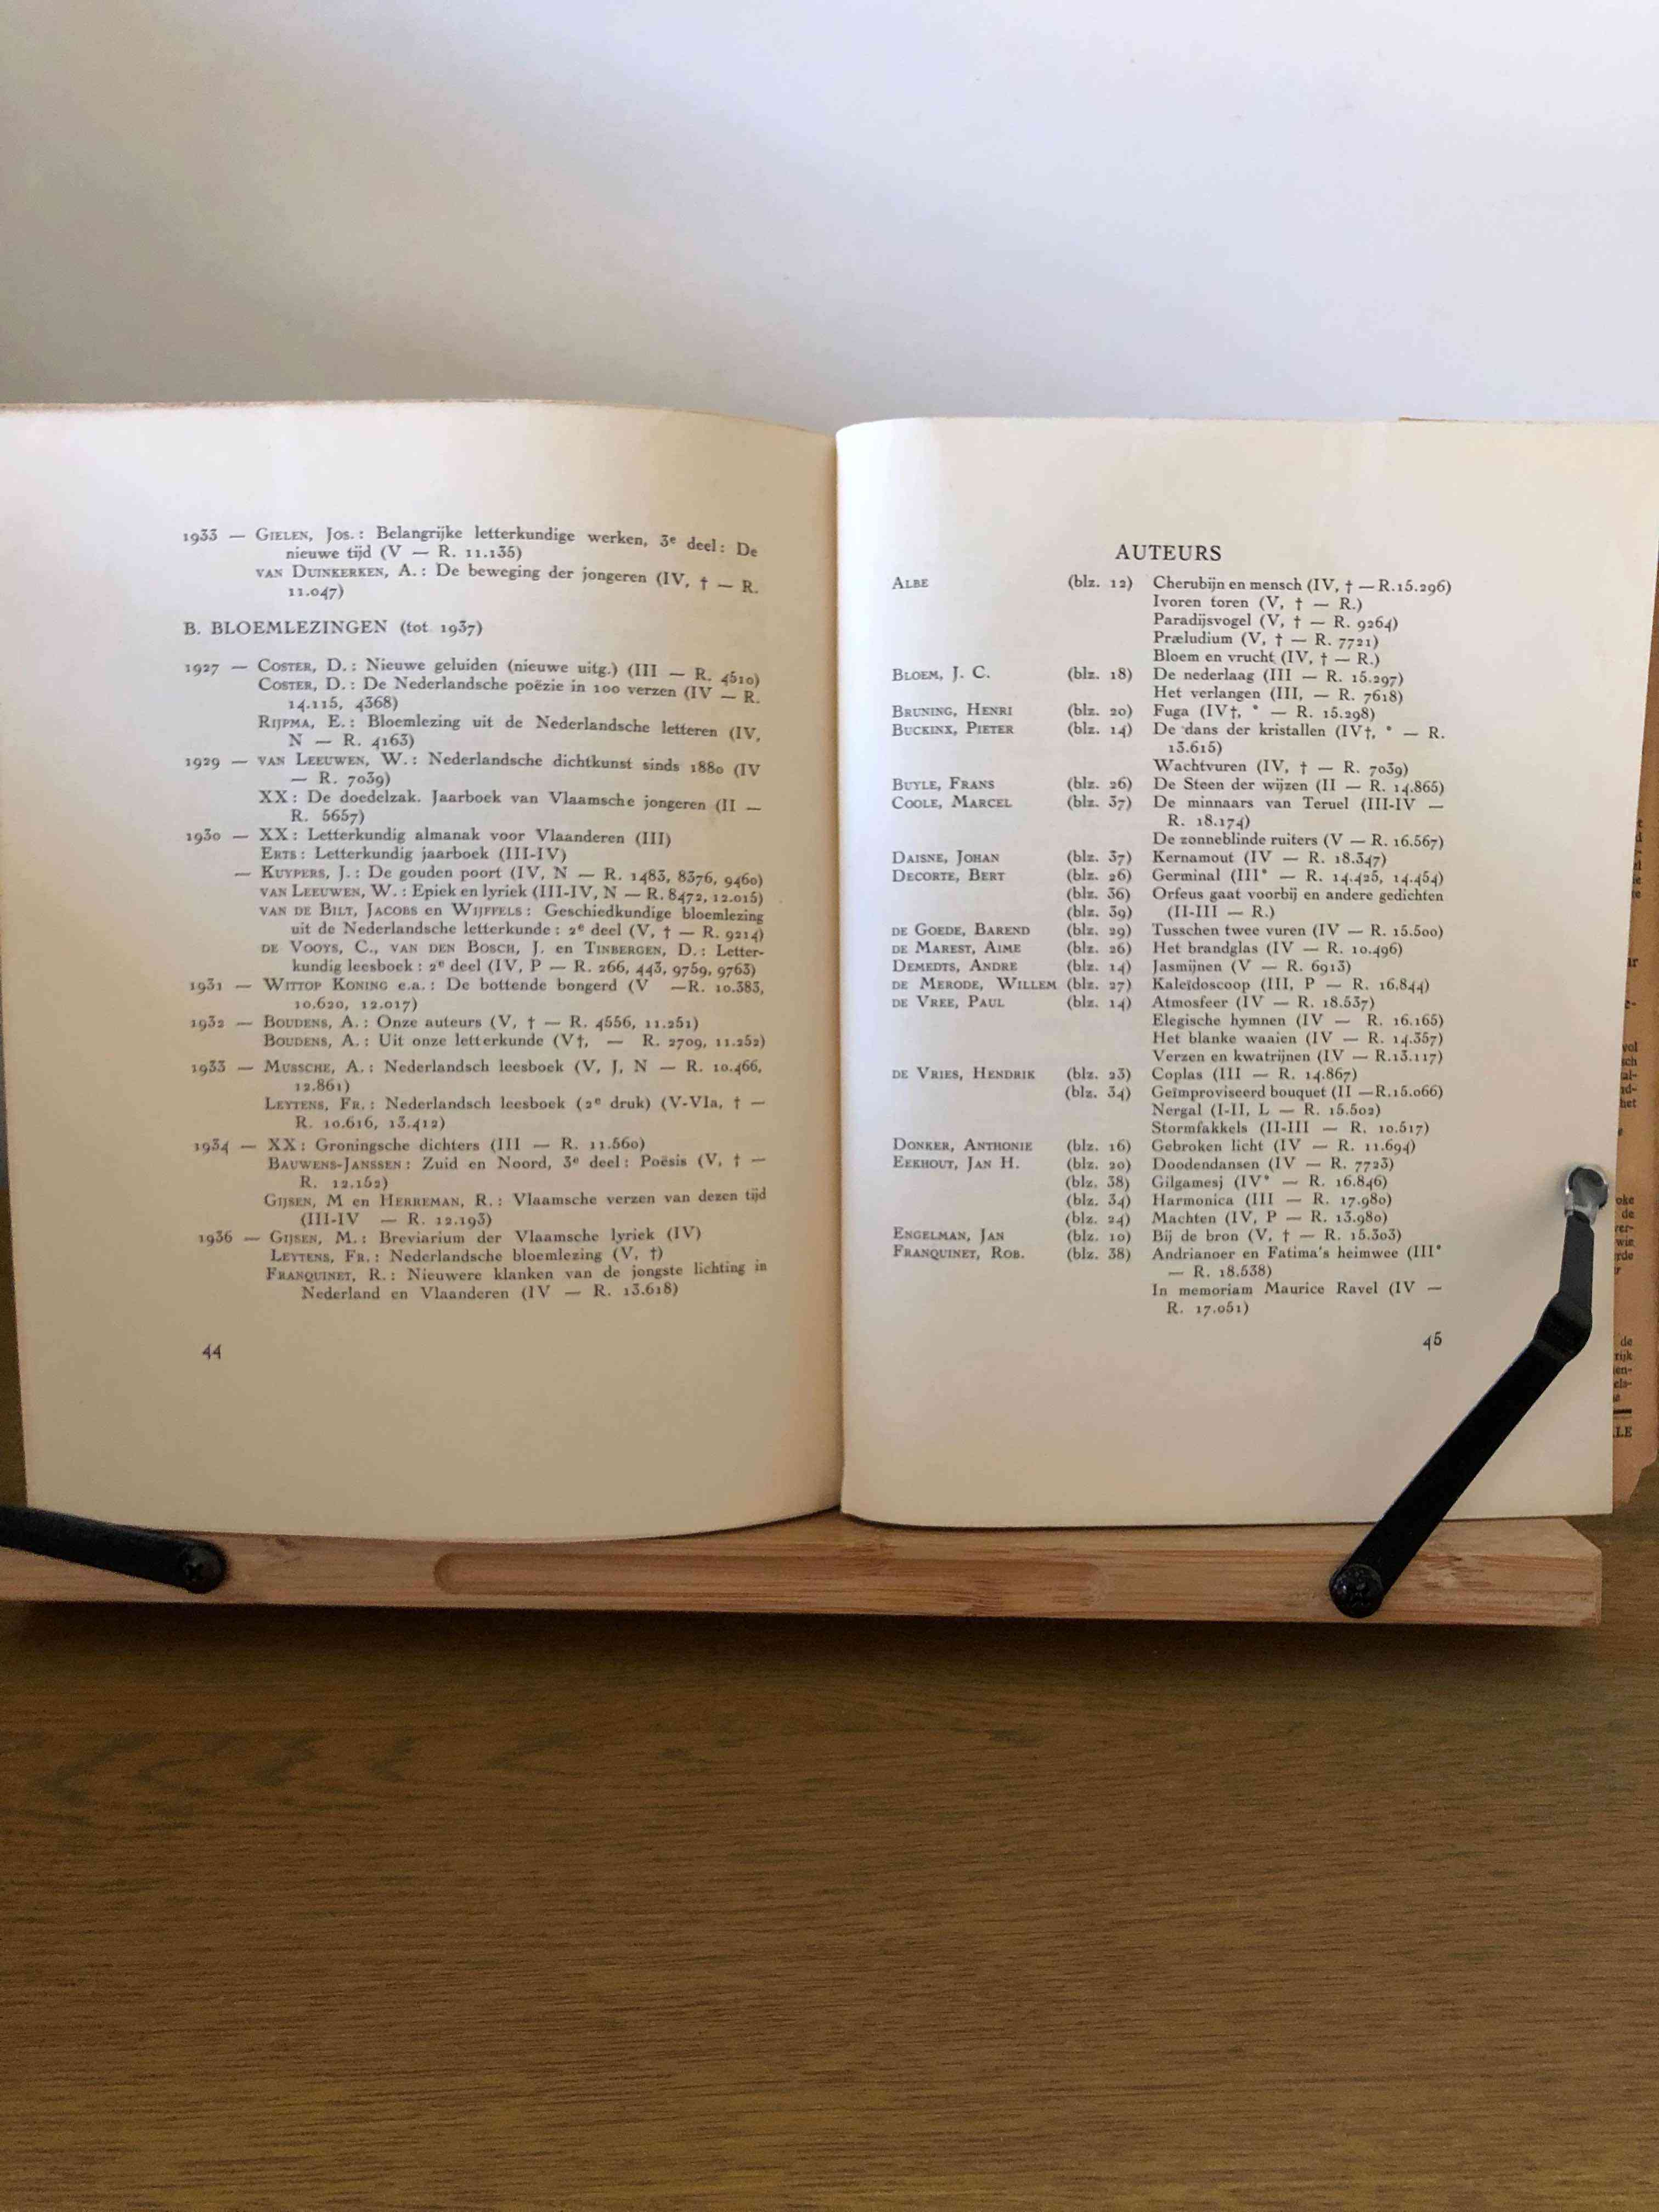 1933 — Gielen, Jos.: Belangrijke letterkundige werken, 3e deel: De
nieuwe tijd (V — R. 11.135)
van Duinkerken, A.: De beweging der jongeren (IV, † — R.
11.047)
B. BLOEMLEZINGEN (tot 1937)
1927 — Coster, D.: Nieuwe geluiden (nieuwe uitg.) (III — R. 4510)
Coster, D.: De Nederlandsche poëzie in 100 verzen (IV — R.
14.115, 4368)
Rijpma, E.: Bloemlezing uit de Nederlandsche letteren (IV,
N — R. 4163)
1929 — van Leeuwen, W.: Nederlandsche dichtkunst sinds 1880 (IV
— R. 7039)
XX: De doedelzak. Jaarboek van Vlaamsche jongeren (II —
R. 5657)
1930 — XX: Letterkundig almanak voor Vlaanderen (III)
Erts: Letterkundig jaarboek (III-IV)
— Kuypers, J.: De gouden poort (IV, N — R. 1483, 8376, 9460)
van Leeuwen, W.: Epiek en lyriek (III-IV, N — R. 8472, 12.015)
van de Bilt, Jacobs en Wijffels: Geschiedkundige bloemlezing
uit de Nederlandsche letterkunde: 2e deel (V, † — R. 9214)
de Vooys, C., van den Bosch, J. en Tinbergen, D.: Letter-
kundig leesboek: 2e deel (IV, P — R. 266, 443, 9759, 9763)
1931 — Wittop Koning e.a.: De bottende bongerd (V —R. 10.383,
10.620, 12.017)
1932 — Boudens, A.: Onze auteurs (V, † — R. 4556, 11.251)
Boudens, A.: Uit onze letterkunde (V†, — R. 2709, 11.252)
1933 — Mussche, A.: Nederlandsch leesboek (V, J, N — R. 10.466,
12.861)
Leytens, Fr.: Nederlandsch leesboek (2e druk) (V-Vla, † —
R. 10.616, 13.412)
1934 — XX: Groningsche dichters (III — R. 11.560)
Bauwens-Janssen: Zuid en Noord, 3e deel: Poësis (V, † —
R. 12.152)
Gijsen, M en Herreman, R.: Vlaamsche verzen van dezen tijd
(III-IV — R. 12.193)
1936 — Gijsen, M.: Breviarium der Vlaamsche lyriek (IV)
Leytens, Fr.: Nederlandsche bloemlezing (V, †)
Franquinet, R.: Nieuwere klanken van de jongste lichting in
Nederland en Vlaanderen (IV — R. 13.618)
44
AUTEURS
Albe (blz. 12) Cherubijn en mensch (IV, † — R.15.296)
Ivoren toren (V, † — R.)
Paradijsvogel (V, † — R. 9264)
Præludium (V, † — R. 7721)
Bloem en vrucht (IV, † — R.)
Bloem, J. C. (blz. 18) De nederlaag (III — R. 15.297)
Het verlangen (III, — R. 7618)
Bruning, Henri (blz. 20) Fuga (IV†, * — R. 15.298)
Buckinx, Pieter (blz. 14) De dans der kristallen (IV†, * — R.
13.615)
Wachtvuren (IV, † — R. 7039)
Buyle, Frans (blz. 26) De Steen der wijzen (II — R. 14.865)
Coole, Marcel (blz. 37) De minnaars van Teruel (III-IV —
R. 18.174)
De zonneblinde ruiters (V — R. 16.567)
Daisne, Johan (blz. 37) Kernamout (IV — R. 18.347)
Decorte, Bert (blz. 26) Germinal (III* — R. 14.425, 14.454)
(blz. 36) Orfeus gaat voorbij en andere gedichten
(blz. 39) (II-III — R.)
de Goede, Barend (blz. 29) Tusschen twee vuren (IV — R. 15.500)
de Marest, Aime (blz. 26) Het brandglas (IV — R. 10.496)
Demedts, Andre (blz. 14) Jasmijnen (V — R. 6913)
de Merode, Willem (blz. 27) Kaleïdoscoop (III, P — R. 16.844)
de Vree, Paul (blz. 14) Atmosfeer (IV — R. 18.537)
Elegische hymnen (IV — R. 16.165)
Het blanke waaien (IV — R. 14.357)
Verzen en kwatrijnen (IV — R.13.117)
de Vries, Hendrik (blz. 23) Coplas (III — R. 14.867)
(blz. 34) Geïmproviseerd bouquet (II —R.15.066)
Nergal (I-II, L — R. 15.502)
Stormfakkels (II-III — R. 10.517)
Donker, Anthonie (blz. 16) Gebroken licht (IV — R. 11.694)
Eekhout, Jan H. (blz. 20) Doodendansen (IV — R. 7723)
(blz. 38) Gilgamesj (IV* — R. 16.846)
(blz. 34) Harmonica (III — R. 17.980)
(blz. 24) Machten (IV, P — R. 13.980)
Engelman, Jan (blz. 10) Bij de bron (V, † — R. 15.303)
Franquinet, Rob. (blz. 38) Andrianoer en Fatima's heimwee (III*
— R. 18.538)
In memoriam Maurice Ravel (IV —
R. 17.051)
45